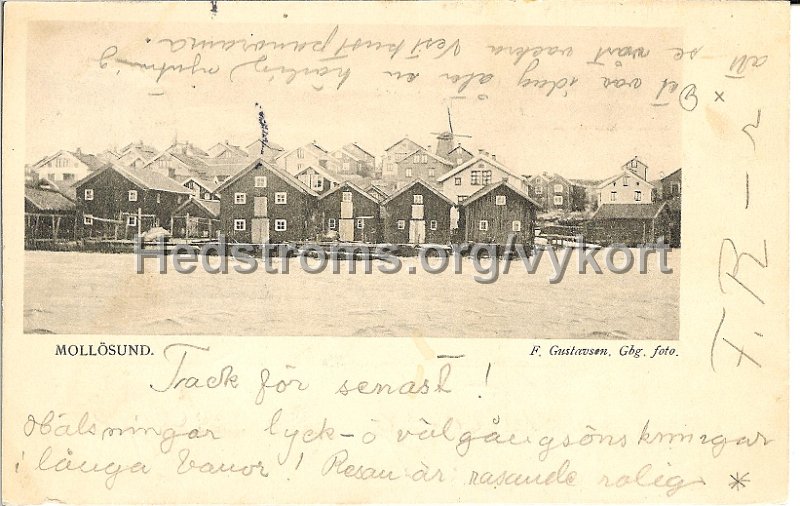 MOLLÖSUND.
F. Gustavsen, Gbg. foto.
Hedstroms.org/Vykort
Tack för senast !
Hälsningar lyck- o välgångsönskningar
i långa banor! Resan är rasande rolig *
× Det var idag åter en härlig njutning
att se vårt vackra Vestkustpanorama.
F. R - r